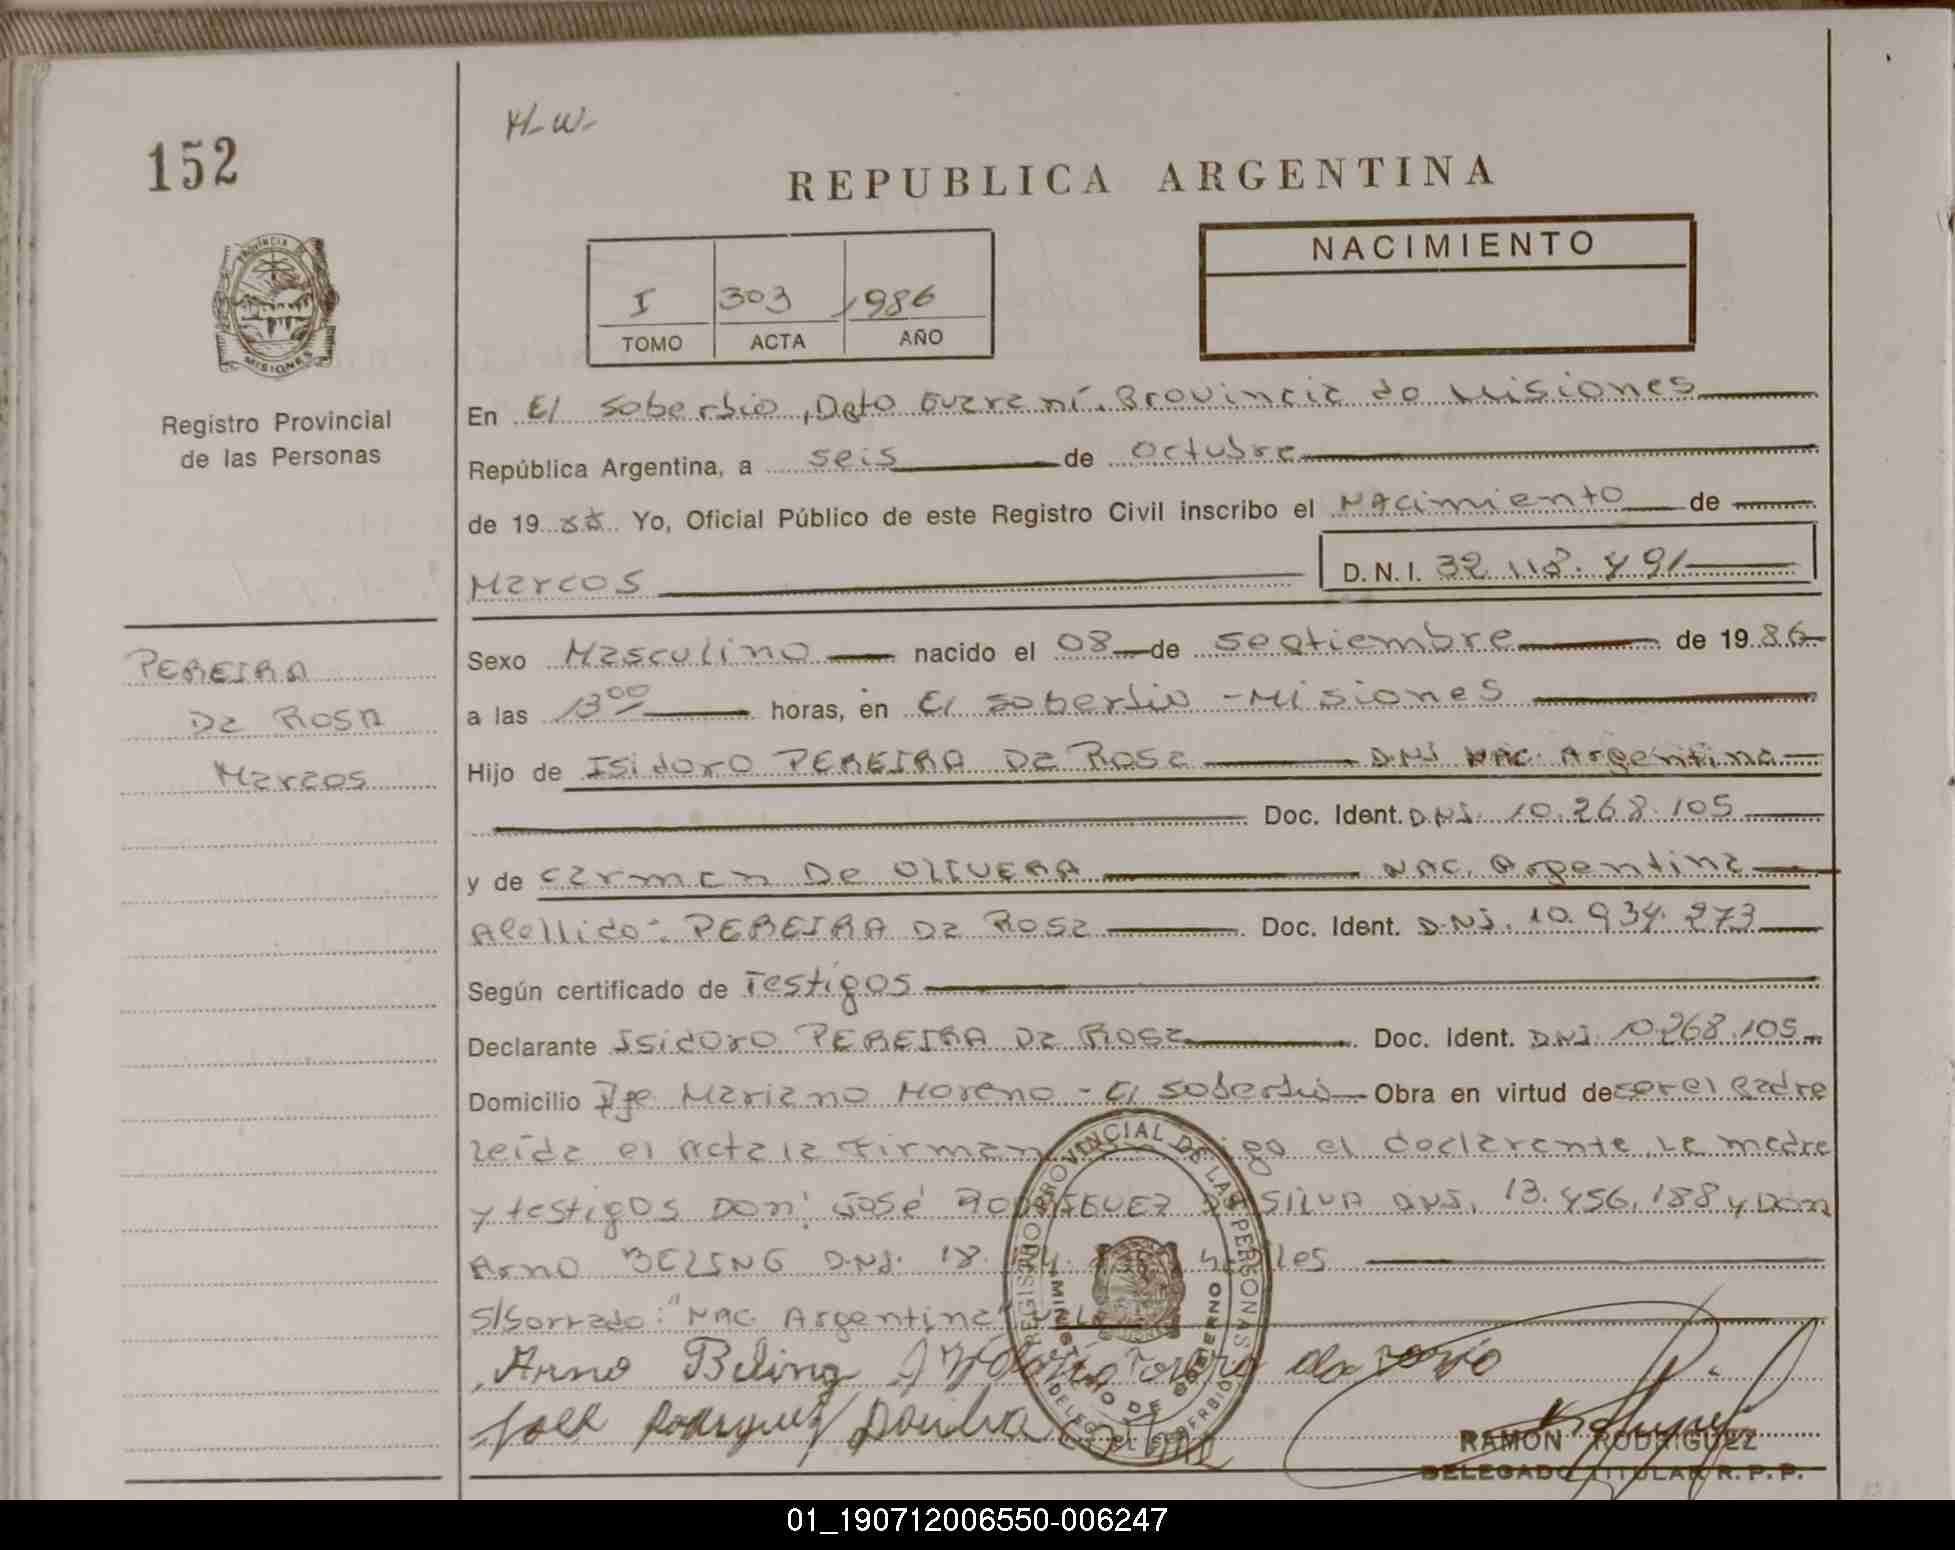 H-W-
152
REPUBLICA ARGENTINA
PROVINCIA DE
MISIONES
I 303 1986
TOMO ACTA AÑO
NACIMIENTO
Registro Provincial
de las Personas
En El Soberbio, Dpto Guaraní. Provincia de Misiones
República Argentina, a seis de octubre
de 19 Yo, Oficial Público de este Registro Civil inscribo el Nacimiento de
Marcos D.N.I. 32.118.491
PEREIRA
Da ROSA
Marcos
Sexo Masculino nacido el 08 de septiembre de 1986
a las 13 00 horas, en El Soberbio - Misiones
Hijo de Isidoro PEREIRA Da Rosa DNI NAC. Argentina
Doc. Ident. DNI. 10.268.105
y de Carmen De OLIVERA NAC. Argentina
Apellido: PEREIRA Da Rosa Doc. Ident. DNI. 10.934.273
Según certificado de Testigos
Declarante Isidoro PEREIRA Da Rosa Doc. Ident. DNI. 10.268.105
Domicilio Pje Mariano Moreno - El Soberbio Obra en virtud de ser el padre
Leída el Acta la Firman el declarante, La madre
y testigos Don: José RODRIGUEZ SILVA DNI. 13.456.188 y Don
Arno BELING DNI. 18.
S/borrado: "NAC. Argentina"
REGISTRO PROVINCIAL DE LAS PERSONAS
MINISTERIO DE GOBIERNO
Arno Beling
José Rodriguez Dasilva
RAMON RODRIGUEZ
DELEGADO TITULAR R.P.P.
01_190712006550-006247